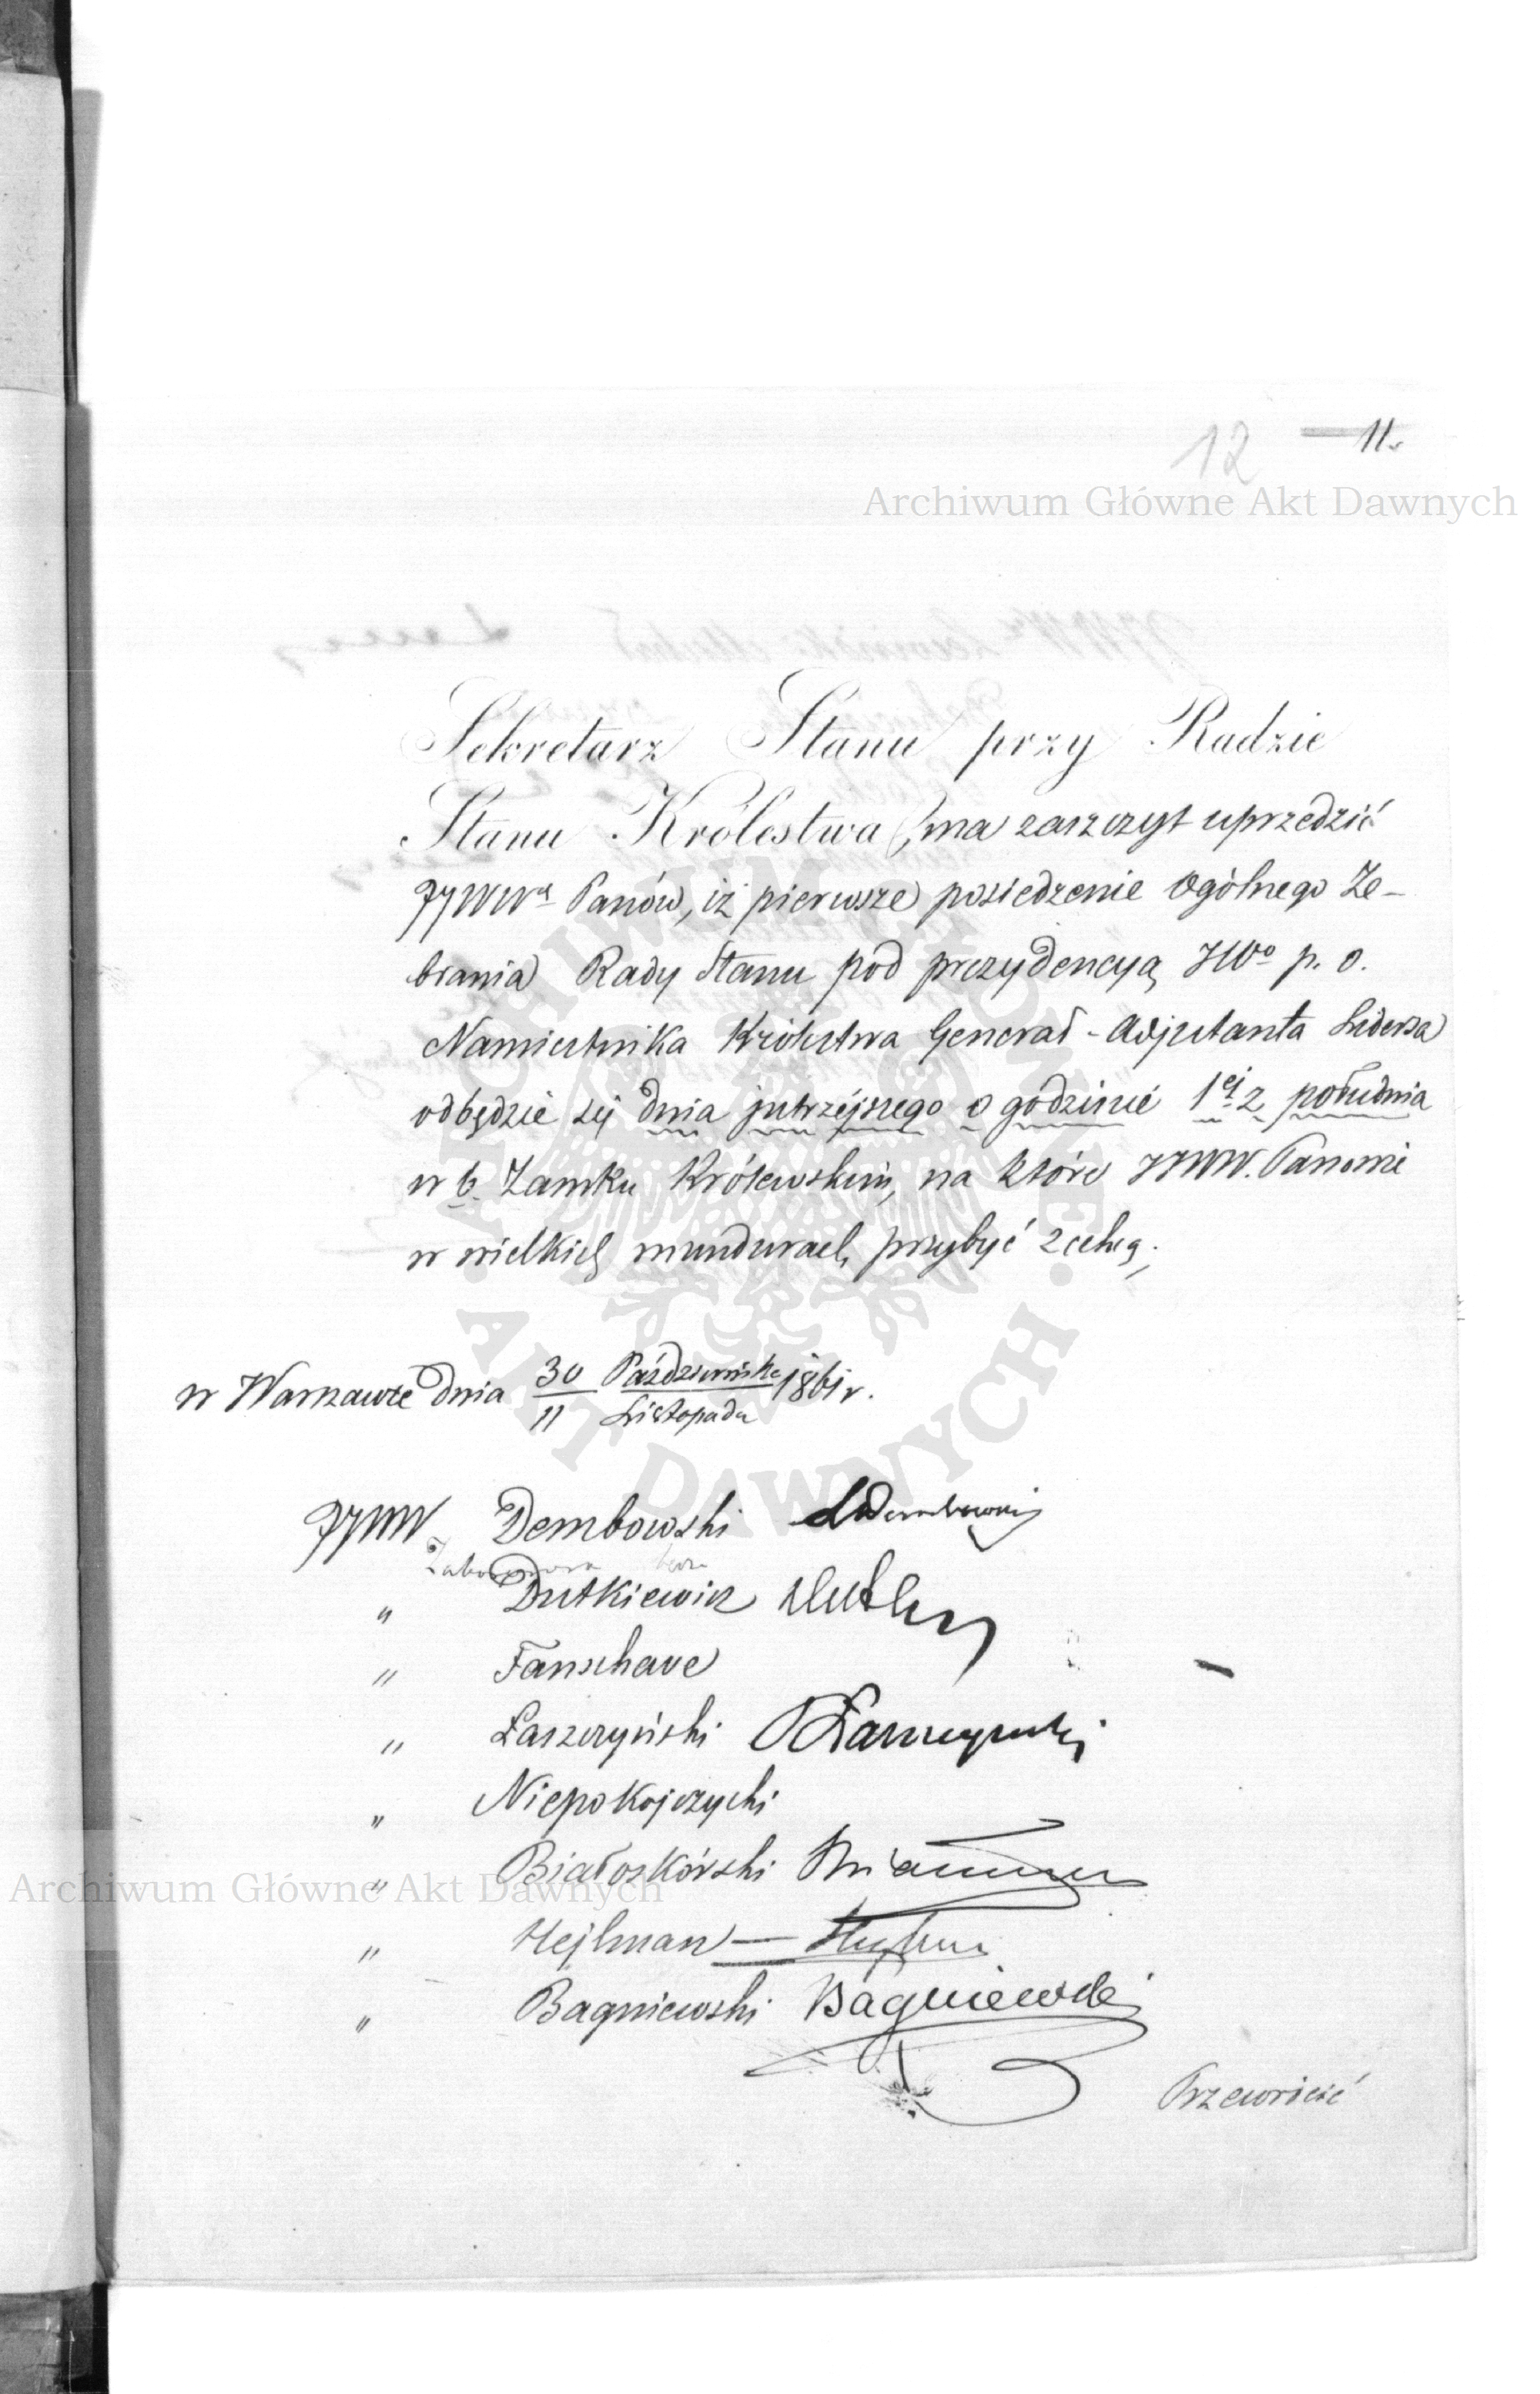 12 11.
Archiwum Główne Akt Dawnych
Sekretarz Stanu przy Radzie
Stanu Królestwa, ma zaszczyt uprzedzić
JJWW Panów, iż pierwsze posiedzenie Ogólnego Ze-
brania Rady Stanu pod prezydencyą JWo p. o.
Namiestnika Królestwa Generał-Adjutanta Lidersa
odbędzie się dnia jutrzejszego o godzinie 1ej z południa
w b. Zamku Królewskim, na które JJWW. Panowie
w wielkich mundurach przybyć zechcą.
w Warszawie dnia 30 Października 1861 r.
11 Listopada
JJWW Dembowski LDembowski
" Dutkiewicz
" Fanschave
" Łaszczyński PŁaszczyński
" Niepokojczycki
" Białoskórski
Archiwum Główne Akt Dawnych
" Hejlman —
" Bagniewski Bagniewski
Przewrócić
ARCHIWUM GŁÓWNE · AKT DAWNYCH ·